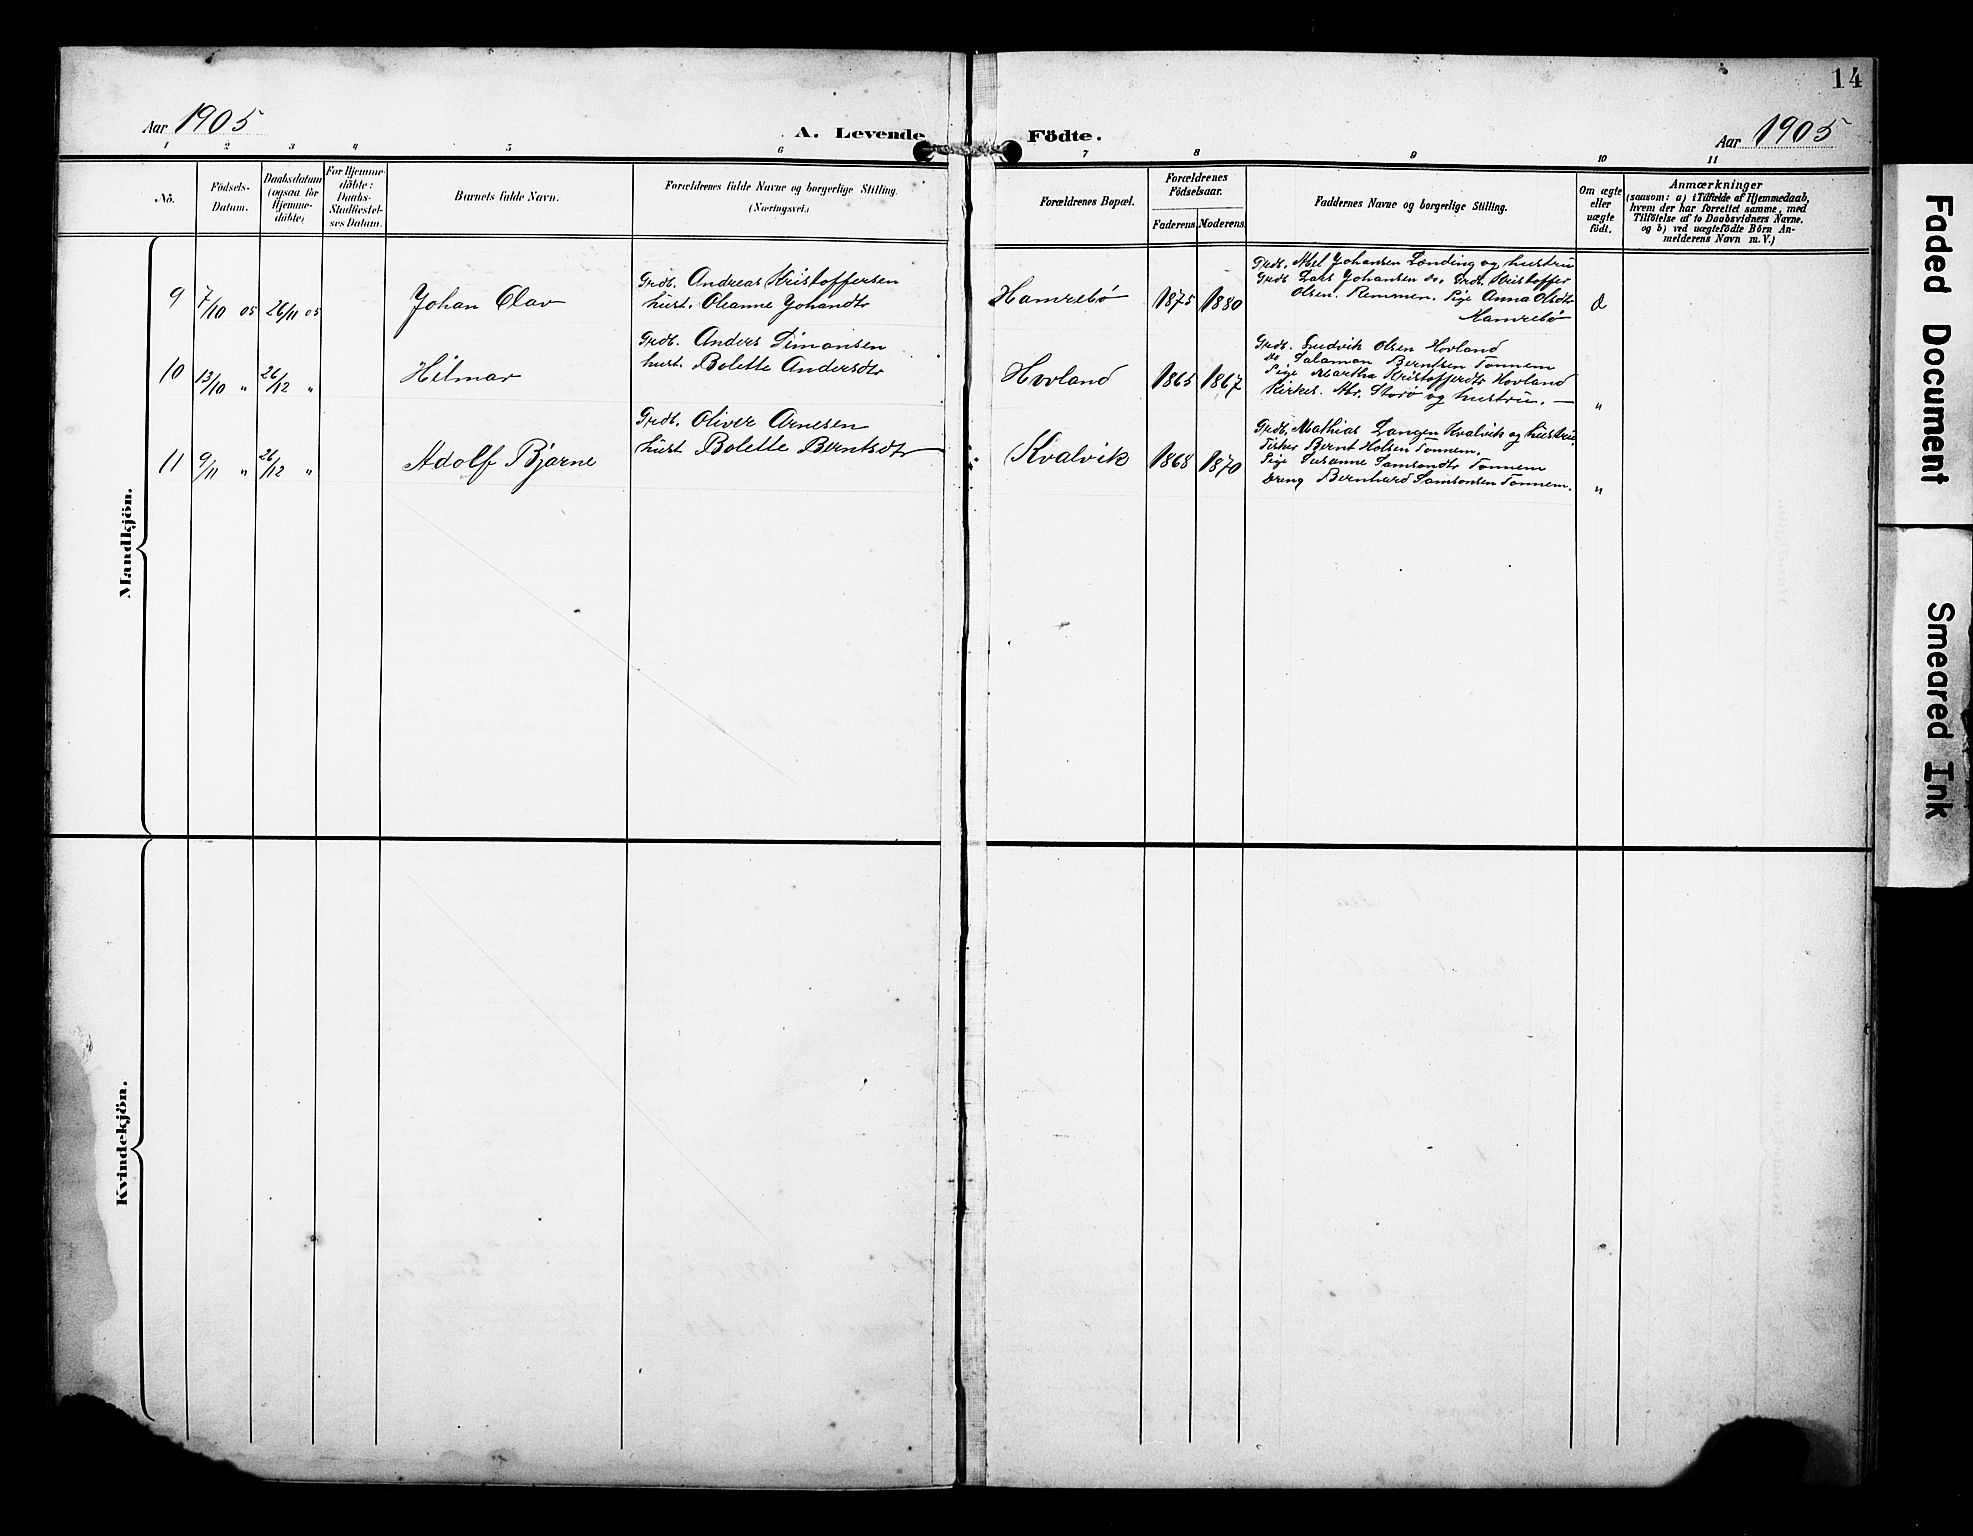 14
Aar 1905
A. Levende Födte.
Aar 1905
1 2 3 4 5 6 7 8 9 10 11
No.
Födsels-
Datum.
Daabsdatum
(ogsaa for
Hjemme-
döbte)
For Hjemme-
döbte:
Daabs-
Stadfæstel-
ses Datum.
Barnets fulde Navn.
Forældrenes fulde Navne og borgerlige Stilling.
(Næringsvei.)
Forældrenes Bopæl.
Forældrenes
Födselsaar.
Faderens Moderens.
Faddernes Navne og borgerlige Stilling.
Om ægte
eller
uægte
födt.
Anmærkninger
(saasom: a) i Tilfælde af Hjemmedaab,
hvem der har forrettet samme, med
Tilföielse af to Daabsvidners Navne.
og b) ved uægtefödte Börn An-
melderens Navn m. V.)
Mandkjön.
9 7/10 05 26/11 05
Johan Olav
Grdb. Andreas Kristoffersen
hust. Oleanne Johandtr
Hamrebö
1875 1880
Grdb. Abel Johansen Lænding og hustru
Grdb. Lars Johansen do. Grdb. Kristoffer
Olsen. Remmen. Pige Anna Olsdtr
Hamrebö
10 13/10 " 26/12 "
Hilmar
Grdb. Anders Simonsen
hust. Bolette Andersdtr
Hovland
1865 1867
Grdb. Ludvik Olsen Hovland
do Salamon Berntsen Tonnem
Pige Martha Kristoffersdtr Hovland
Kirkes. Abr. Storö og hustru. —
"
11 9/11 " 26/12 "
Adolf Bjarne
Grdb. Oliver Arnesen
hust Bolette Berntsdtr
Kvalvik
1868 1870
Grdb. Mathias Langen Kvalvik og hustru,
Fisker Bernt Helsen Tonnem.
Pige Susanne Samsondtr Tonnem
Dreng Bernhard Samsonsen Tonnem.
"
Kvindekjön.
Faded Document
Smeared Ink